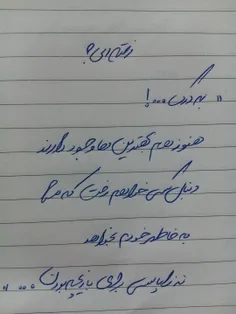 رفته ای؟
" به درک ...!
هنوز هم بهترین ها وجود دارند
دنبال کسی خواهم رفت که مرا
به خاطر خودم بخواهد
نه زاپاسی برای بازیچه بودن ... "